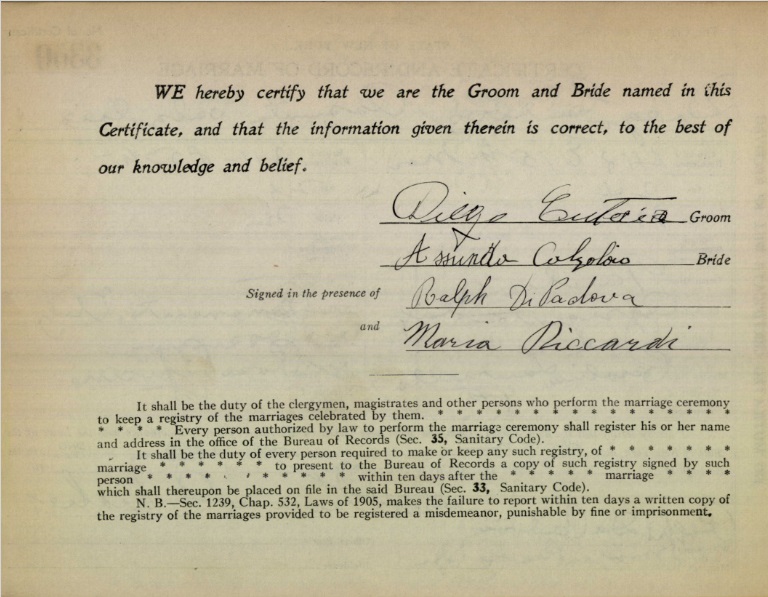 WE hereby certify that we are the Groom and Bride named in this
Certificate, and that the information given therein is correct, to the best of
our knowledge and belief.
Diego Groom
Assunta Bride
Signed in the presence of Ralph DiPadova
and Maria Riccardi
It shall be the duty of the clergymen, magistrates and other persons who perform the marriage ceremony
to keep a registry of the marriages celebrated by them. * * * * * * * * * * * * * * *
* * * * Every person authorized by law to perform the marriage ceremony shall register his or her name
and address in the office of the Bureau of Records (Sec. 35, Sanitary Code).
It shall be the duty of every person required to make or keep any such registry, of * * * * * *
marriage * * * * * * to present to the Bureau of Records a copy of such registry signed by such
person * * * * * * * * * * within ten days after the * * * * * marriage * * * *
which shall thereupon be placed on file in the said Bureau (Sec. 33, Sanitary Code).
N. B.—Sec. 1239, Chap. 532, Laws of 1905, makes the failure to report within ten days a written copy of
the registry of the marriages provided to be registered a misdemeanor, punishable by fine or imprisonment.